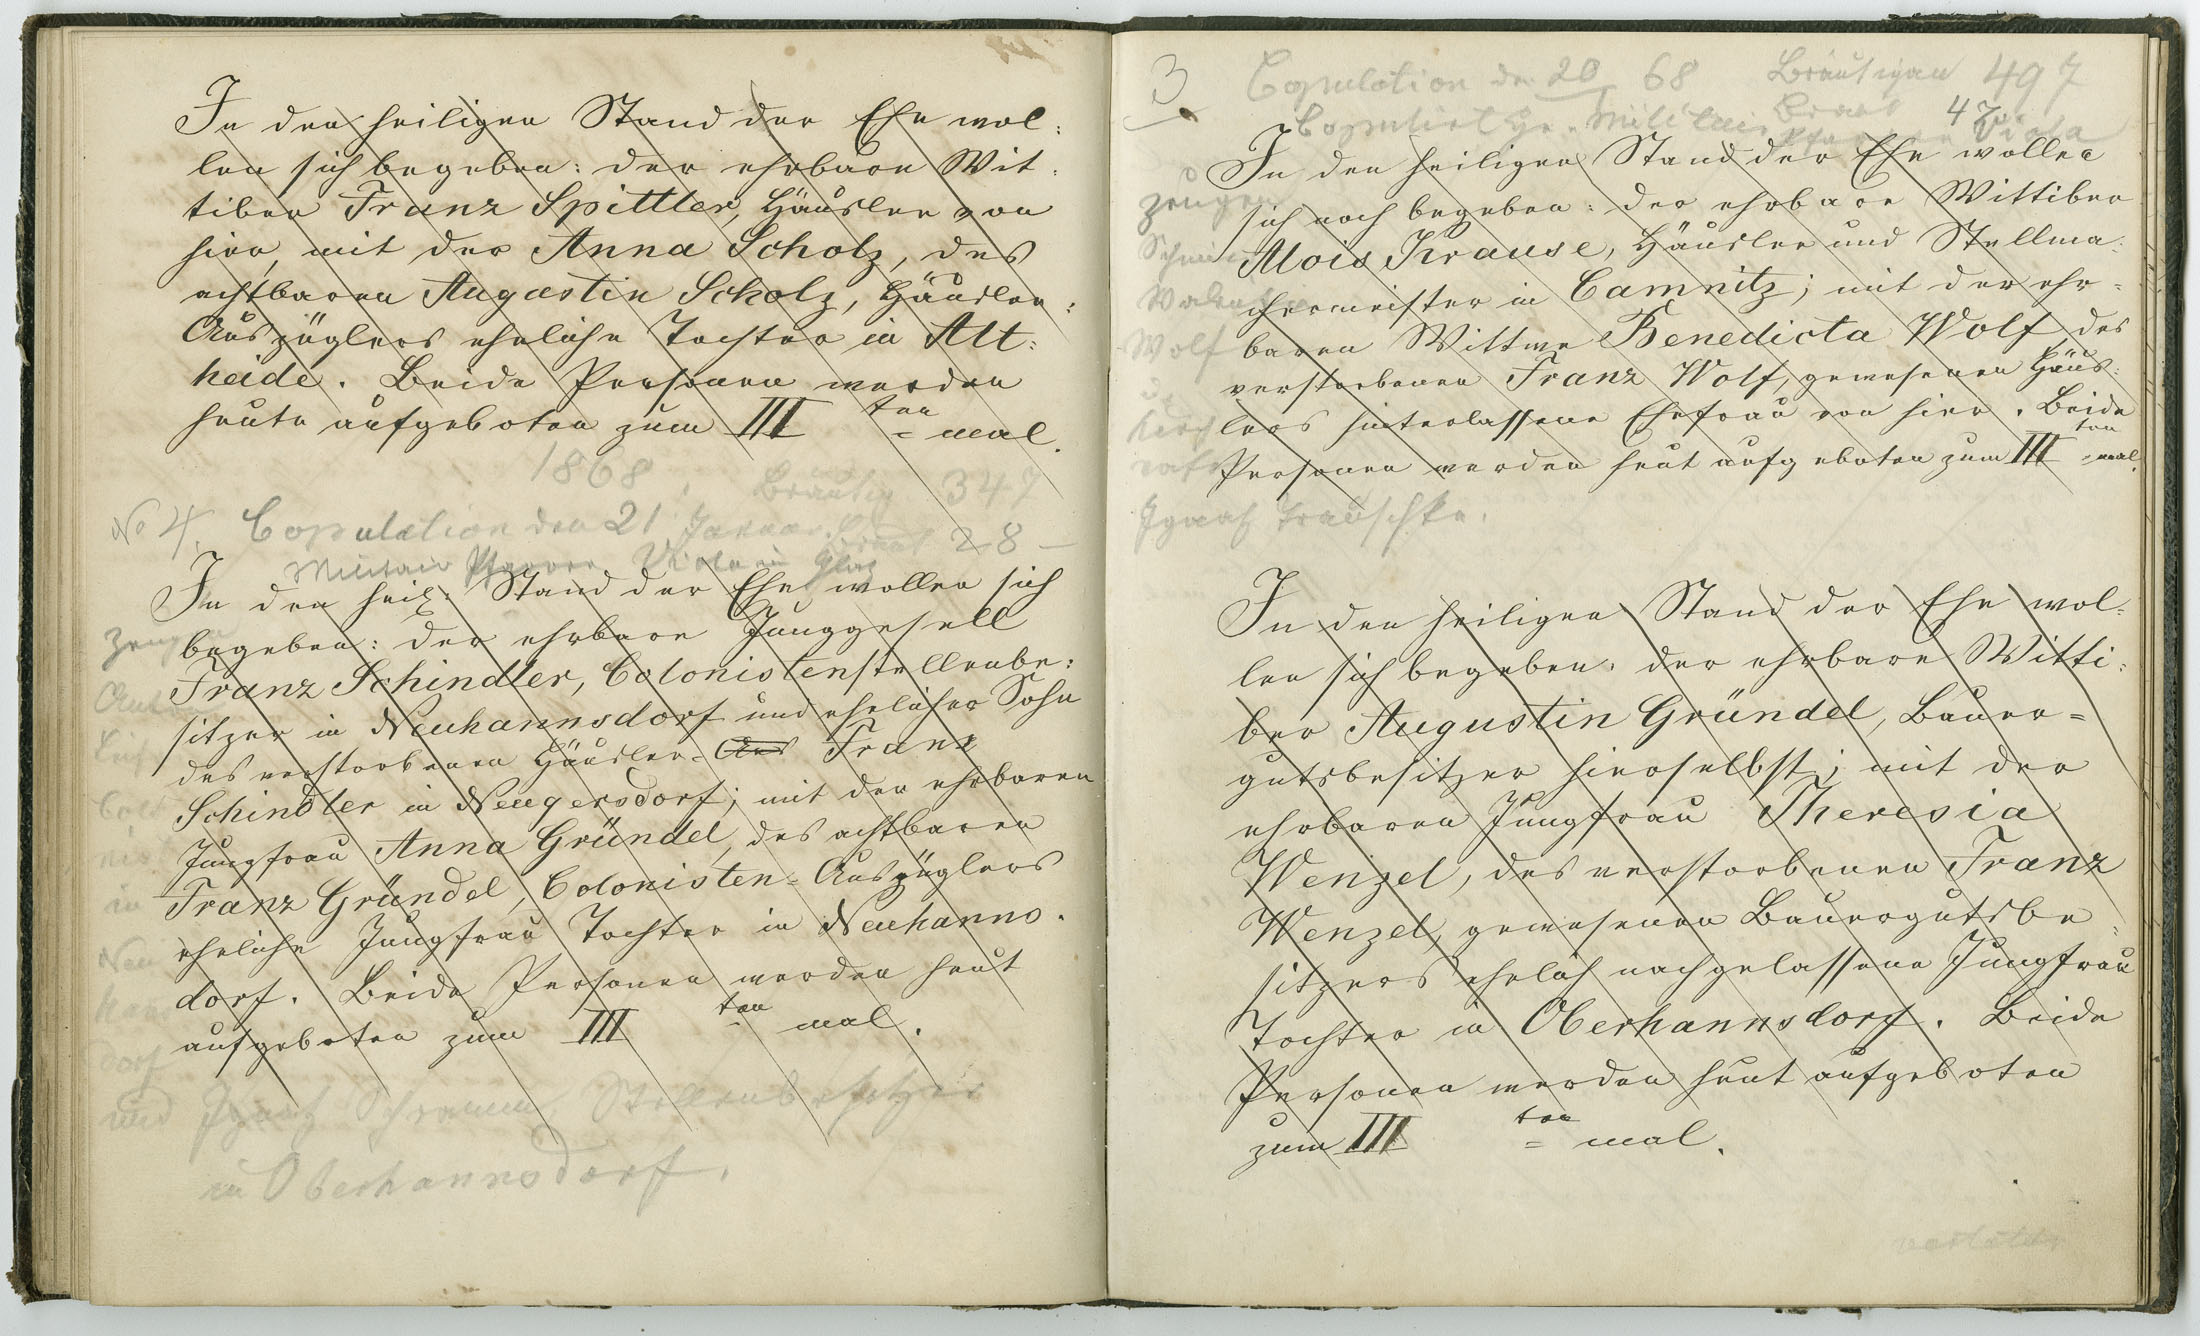 In den heiligen Stand der Ehe wol:
len sich begeben: der ehrbare Wit:
tiber Franz Spittler, Häusler von
hier, mit der Anna Scholz, des
achtbaren Augustin Scholz, Häusler:
Auszüglers eheliche Tochter in Alt:
heide. Beide Personen werden
heute aufgeboten zum III ten = mal.
1868 Bräutig 347
No 4. Copulation den 21 Januar Braut 28 –
Militair Pfarrer Viola in Glatz
In den heil: Stand der Ehe wollen sich
begeben: der ehrbare Junggesell
Franz Schindler, Colonistenstellenbe:
sitzer in Neuhannsdorf und ehelicher Sohn
des verstorbenen Häusler= Franz
Schindler in Neugersdorf; mit der ehrbaren
Jungfrau Anna Gründel, des achtbaren
Franz Gründel, Colonisten= Auszüglers
eheliche Jungfrau Tochter in Neuhanns.
dorf. Beide Personen werden heut
aufgeboten zum III ten mal.
Zeugen
in
Neu
dorf
und Ignatz Schramm Stellenbesitzer
in Oberhannsdorf.
3 Copulation den 20 68 Bräutigam 497
Copulirt Militair Braut 47
Pfarrer Viola
In den heiligen Stand der Ehe wollen
sich noch begeben: der ehrbare Wittiber
Alois Krause, Häusler und Stellma:
chermeister in Camnitz; mit der ehr=
baren Wittwe Benedicta Wolf, des
verstorbenen Franz Wolf, gewesenen Häus:
lers hinterlassene Ehefrau von hier. Beide
Personen werden heut aufgeboten zum III ten =mal.
Zeugen
Wolf
u.
Ignatz Trauschke.
In den heiligen Stand der Ehe wol=
len sich begeben: der ehrbare Witti:
ber Augustin Gründel, Bauer=
gutsbesitzer hierselbst; mit der
ehrbaren Jungfrau Theresia
Wenzel, des verstorbenen Franz
Wenzel, gewesenen Bauergutsbe=
sitzers ehelich nachgelassene Jungfrau
Tochter in Oberhannsdorf. Beide
Personen werden heut aufgeboten
zum III ten = mal.